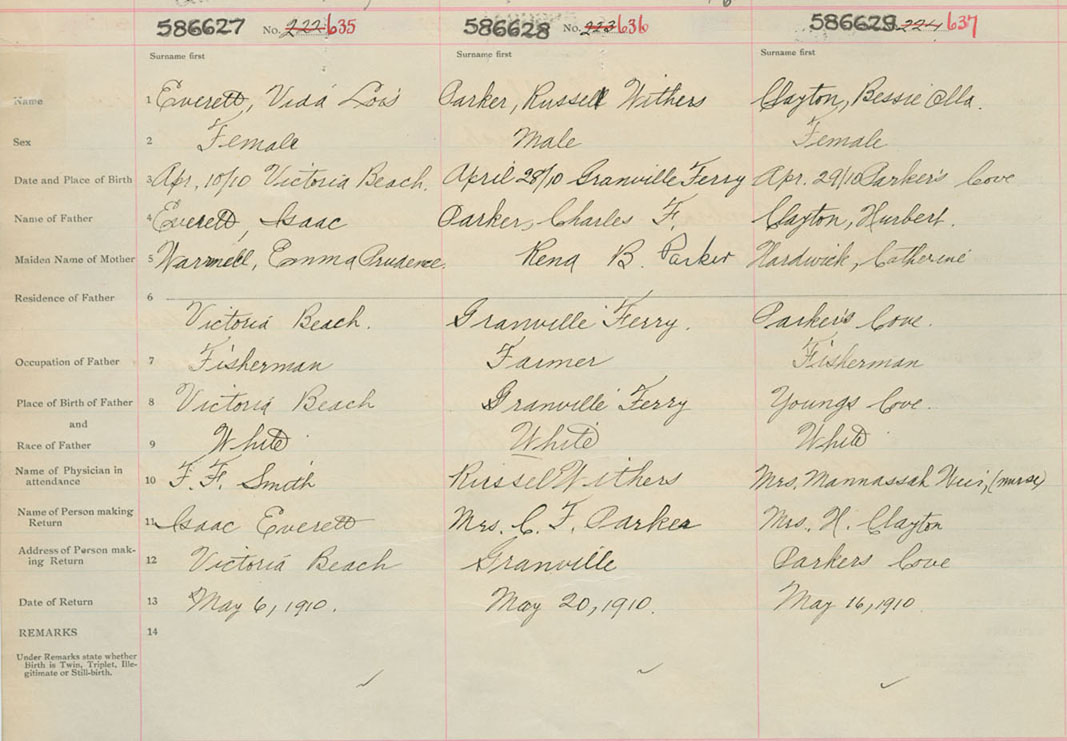 586627 No. 222 635 586628 No. 223 636 586629 224 637
Surname first Surname first Surname first
Name 1 Everett, Vida Lois Parker, Russell Withers Clayton, Bessie Olla.
Sex 2 Female Male Female
Date and Place of Birth 3 Apr. 10/10 Victoria Beach. April 28/10 Granville Ferry Apr. 29/10 Parker's Cove
Name of Father 4 Everett, Isaac Parker, Charles F. Clayton, Hurbert.
Maiden Name of Mother 5 Warmell, Emma Prudence. Rena B. Parker Hardwick, Catherine
Residence of Father 6
Victoria Beach. Granville Ferry. Parker's Cove.
Occupation of Father 7 Fisherman Farmer Fisherman
Place of Birth of Father 8 Victoria Beach Granville Ferry Youngs Cove.
and
Race of Father 9 White White White
Name of Physician in
attendance 10 F. F. Smith Russel Withers Mrs. Mannassah (nurse)
Name of Person making
Return 11 Isaac Everett Mrs. C. F. Parker Mrs. H. Clayton
Address of Person mak-
ing Return 12 Victoria Beach Granville Parkers Cove
Date of Return 13 May 6, 1910. May 20, 1910. May 16, 1910.
REMARKS 14
Under Remarks state whether
Birth is Twin, Triplet, Ille-
gitimate or Still-birth.